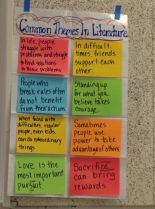 Common Themes In Literature
In life, people
struggle with
problems and struggle
to find solutions
to those problems
In difficult
times, friends
support each
other
People who
break rules often
do not benefit
from their action
Standing up
for what you
believe takes
courage
When faced with
difficulties, regular
people, even kids,
can do extraordinary
things
Sometimes
people use
power to take
advantage of others
Love is the
most important
pursuit
Sacrifice
can bring
rewards